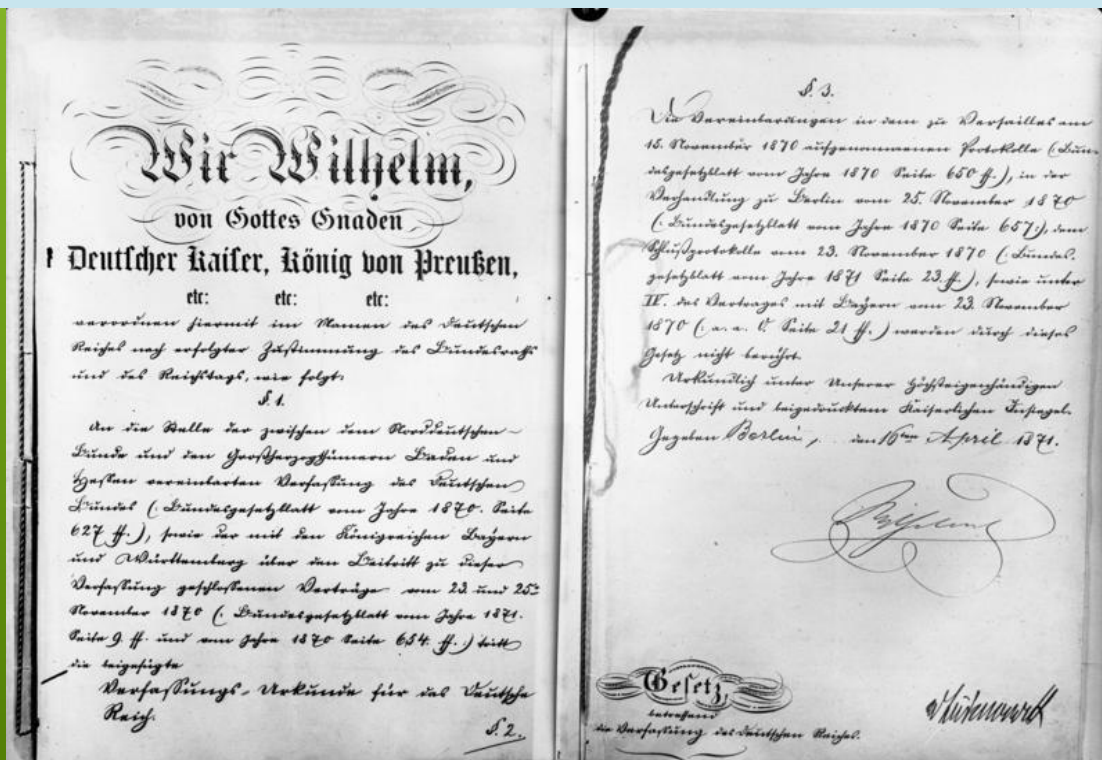 Wir Wilhelm,
von Gottes Gnaden
Deutscher Kaiser, König von Preußen,
etc: etc: etc:
verordnen hiermit im Namen des Deutschen
Reiches nach erfolgter Zustimmung des Bundesraths
und des Reichstags, wie folgt:
§. 1.
An die Stelle der zwischen dem Norddeutschen
Bunde und den Großherzogthümern Baden und
Hessen vereinbarten Verfassung des Deutschen
Bundes (: Bundesgesetzblatt vom Jahre 1870. Seite
627 ff. :), sowie der mit den Königreichen Bayern
und Württemberg über den Beitritt zu dieser
Verfassung geschlossenen Verträge vom 23. und 25.
November 1870 (: Bundesgesetzblatt vom Jahre 1871.
Seite 9. ff. und vom Jahre 1870 Seite 654. ff. :) tritt
die beigefügte
Verfassungs-Urkunde für das Deutsche
Reich.
§. 2.
§. 3.
Die Vereinbarungen in dem zu Versailles am
15. November 1870 aufgenommenen Protokolle (: Bun-
desgesetzblatt vom Jahre 1870 Seite 650 ff. :), in der
Verhandlung zu Berlin vom 25. November 1870
(: Bundesgesetzblatt vom Jahre 1870 Seite 657 :), dem
Schlußprotokolle vom 23. November 1870 (: Bundes-
gesetzblatt vom Jahre 1871 Seite 23. ff. :), sowie unter
IV. des Vertrages mit Bayern vom 23. November
1870 (: a. a. O. Seite 21 ff. :) werden durch dieses
Gesetz nicht berührt.
Urkundlich unter Unserer Höchsteigenhändigen
Unterschrift und beigedrucktem Kaiserlichen Insiegel.
Gegeben Berlin, den 16ten April 1871.
Wilhelm
Gesetz,
betreffend
die Verfassung des Deutschen Reiches.